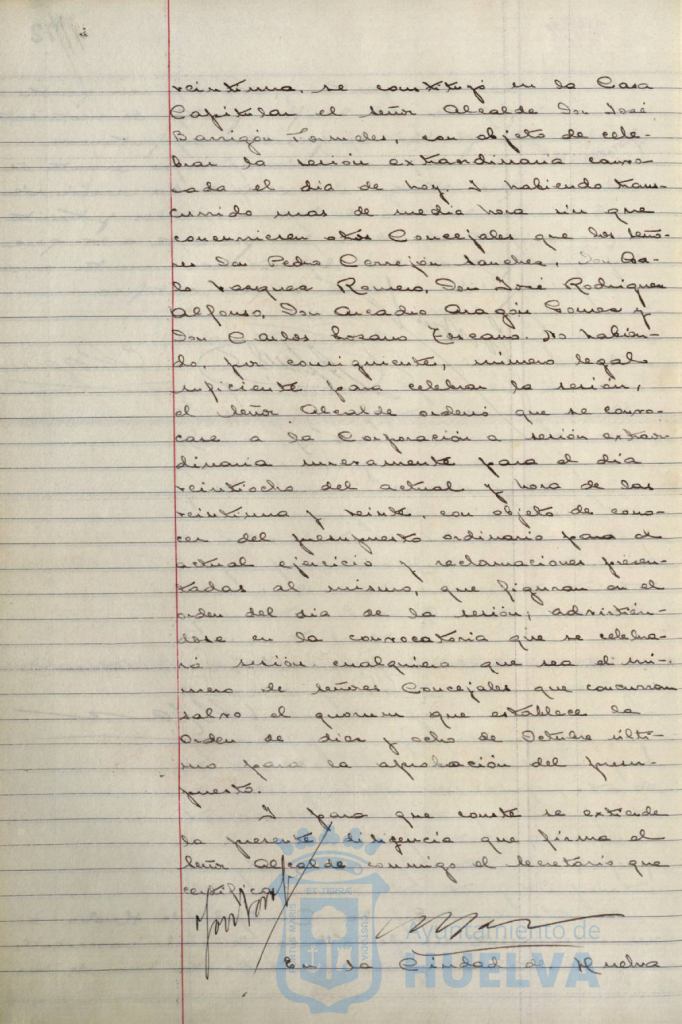 veintiuna, se constituyó en la Casa
Capitular el señor Alcalde Don José
Barrigón Fornieles, con objeto de cele-
brar la sesión extraordinaria convo-
cada el dia de hoy. Y habiendo trans-
currido mas de media hora sin que
concurriesen otros Concejales que los seño-
res Don Pedro Cerrejón Sanchez, Don Pa-
blo Vazquez Romero, Don José Rodriguez
Alfonso, Don Arcadio Aragón Gomez y
Don Carlos Lozano Toscano. No habien-
do, por consiguiente, número legal
suficiente para celebrar la sesión,
el señor Alcalde ordenó que se convo-
case a la Corporación a sesión extraor-
dinaria nuevamente para el dia
veintiocho del actual y hora de las
veintiuna y veinte, con objeto de cono-
cer del presupuesto ordinario para el
actual ejercicio y reclamaciones presen-
tadas al mismo, que figuran en el
orden del dia de la sesión; advirtién-
dose en la convocatoria que se celebra-
rá sesión cualquiera que sea el nú-
mero de señores Concejales que concurran
salvo el quorum que establece la
Orden de diez y ocho de Octubre últi-
mo para la aprobación del presu-
puesto.
Y para que conste se extiende
la presente diligencia que firma el
señor Alcalde conmigo el Secretario que
certifico.
En la Ciudad de Huelva
Ayuntamiento de
HUELVA